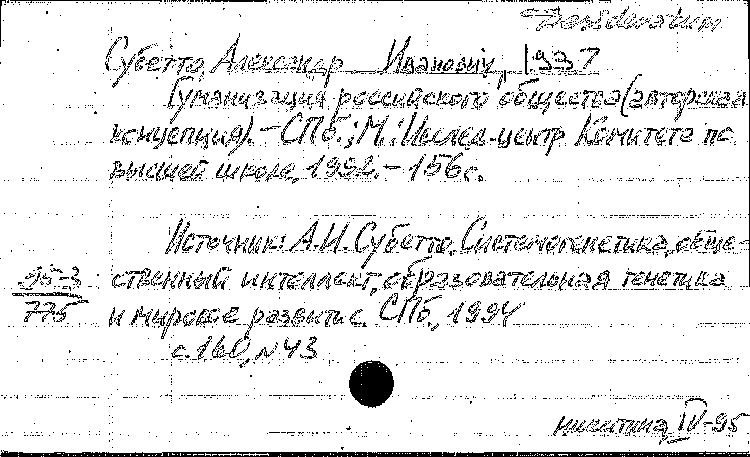 Desideratum
Субетто, Александр Иванович, 1937
Гуманизация российского общества (авторская
концепция). – СПб.; М.: Исслед. центр Комитета по
высшей школе, 1992. – 156 с.
Источник: А.И. Субетто. Системогенетика, обще-
95-3 ственный интеллект, образовательная генетика
775 и мировое развитие. СПб., 1994
с. 160, N 43
Никитина, IV-95